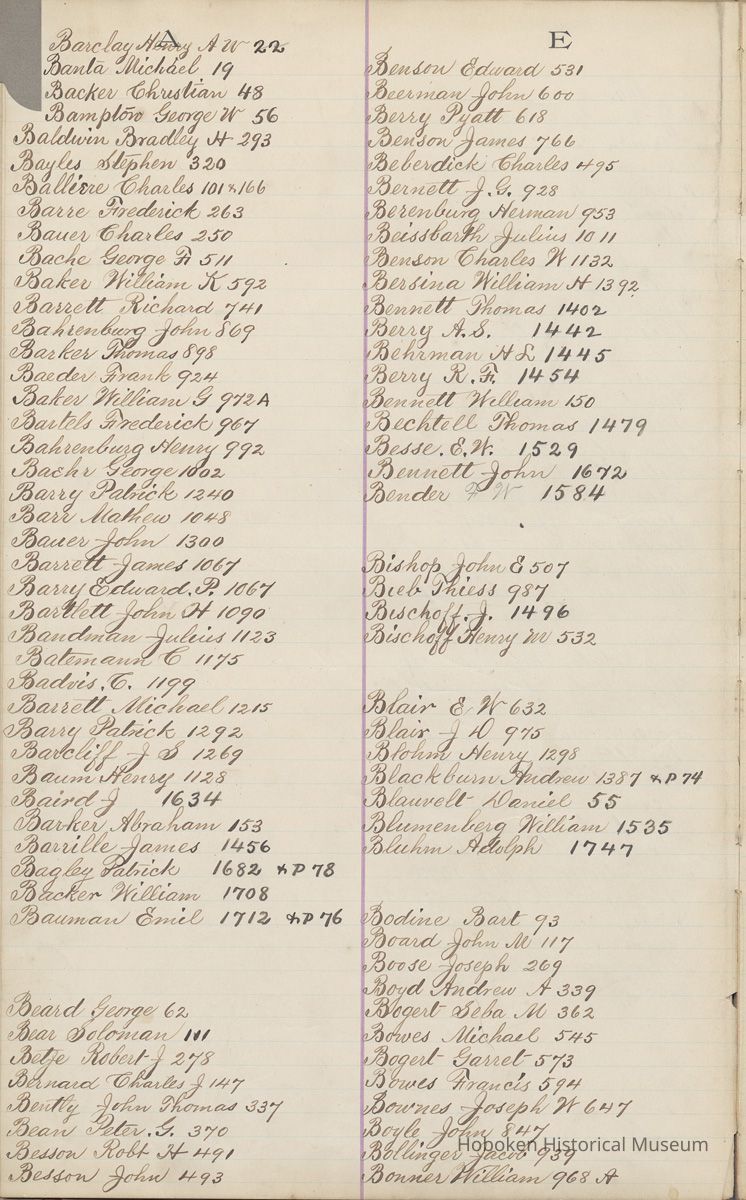 A
Barclay Henry A W 22
Banta Michael 19
Backer Christian 48
Bampton George W 56
Baldwin Bradley H 293
Bayles Stephen 320
Balliere Charles 101 & 166
Barre Frederick 263
Bauer Charles 250
Bache George F. 511
Baker William K 592
Barrett Richard 741
Bahrenburg John 869
Barker Thomas 898
Baeder Frank 924
Baker William G 972A
Bartels Frederick 967
Bahrenburg Henry 992
Baehr George 1002
Barry Patrick 1240
Barr Mathew 1048
Bauer John 1300
Barrett James 1067
Barry Edward. P. 1067
Bartlett John H 1090
Bandman Julius 1123
Batemann C 1175
Badvis. C. 1199
Barrett Michael 1215
Barry Patrick 1292
Barcliff J S 1269
Baum Henry 1128
Baird J 1634
Barker Abraham 153
Barrille James 1456
Bagley Patrick 1682 & P 78
Backer William 1708
Bauman Emil 1712 & P 76
Beard George 62
Bear Soloman 111
Betje Robert J 278
Bernard Charles J 147
Bently John Thomas 337
Bean Peter. G. 370
Besson Robt H 491
Besson John 493
E
Benson Edward 531
Beerman John 600
Berry Pyatt 618
Benson James 766
Beberdick Charles 495
Bernett J. G. 928
Berenburg Herman 953
Beissbarth Julius 1011
Benson Charles W 1132
Bersina William H 1392
Bennett Thomas 1402
Berry A. S. 1442
Behrman H L 1445
Berry R. F. 1454
Bennett William 150
Bechtell Thomas 1479
Besse. E. W. 1529
Bennett John 1672
Bender F W 1584
Bishop John E 507
Bieb Thiess 987
Bischoff. J. 1496
Bischoff Henry W 532
Blair E W 632
Blair J D 975
Blohm Henry 1298
Blackburn Andrew 1387 & P 74
Blauvelt Daniel 55
Blumenberg William 1535
Bluhm Adolph 1747
Bodine Bart 93
Board John M 117
Boose Joseph 269
Boyd Andrew A 339
Bogert Seba M 362
Bowes Michael 545
Bogert Garret 573
Bowes Francis 594
Bownes Joseph W 647
Boyle John 847
Bollinger Jacob 939
Bonner William 968 A
Hoboken Historical Museum